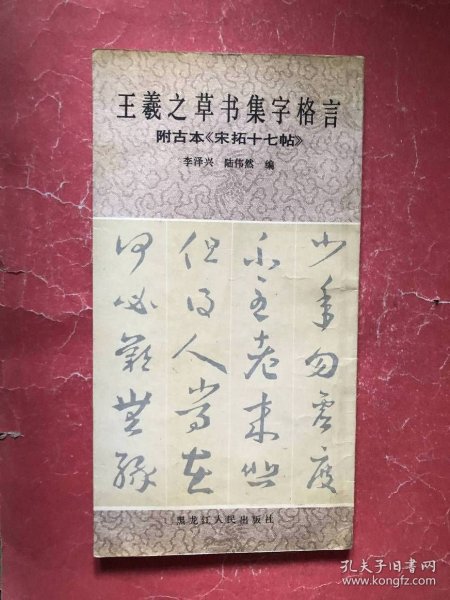 王羲之草书集字格言
附古本《宋拓十七帖》
李泽兴 陆伟然 编
少年勿虚度
老来
但得人常在
何必無緣
黑龙江人民出版社
孔夫子旧书网
www.kongfz.com